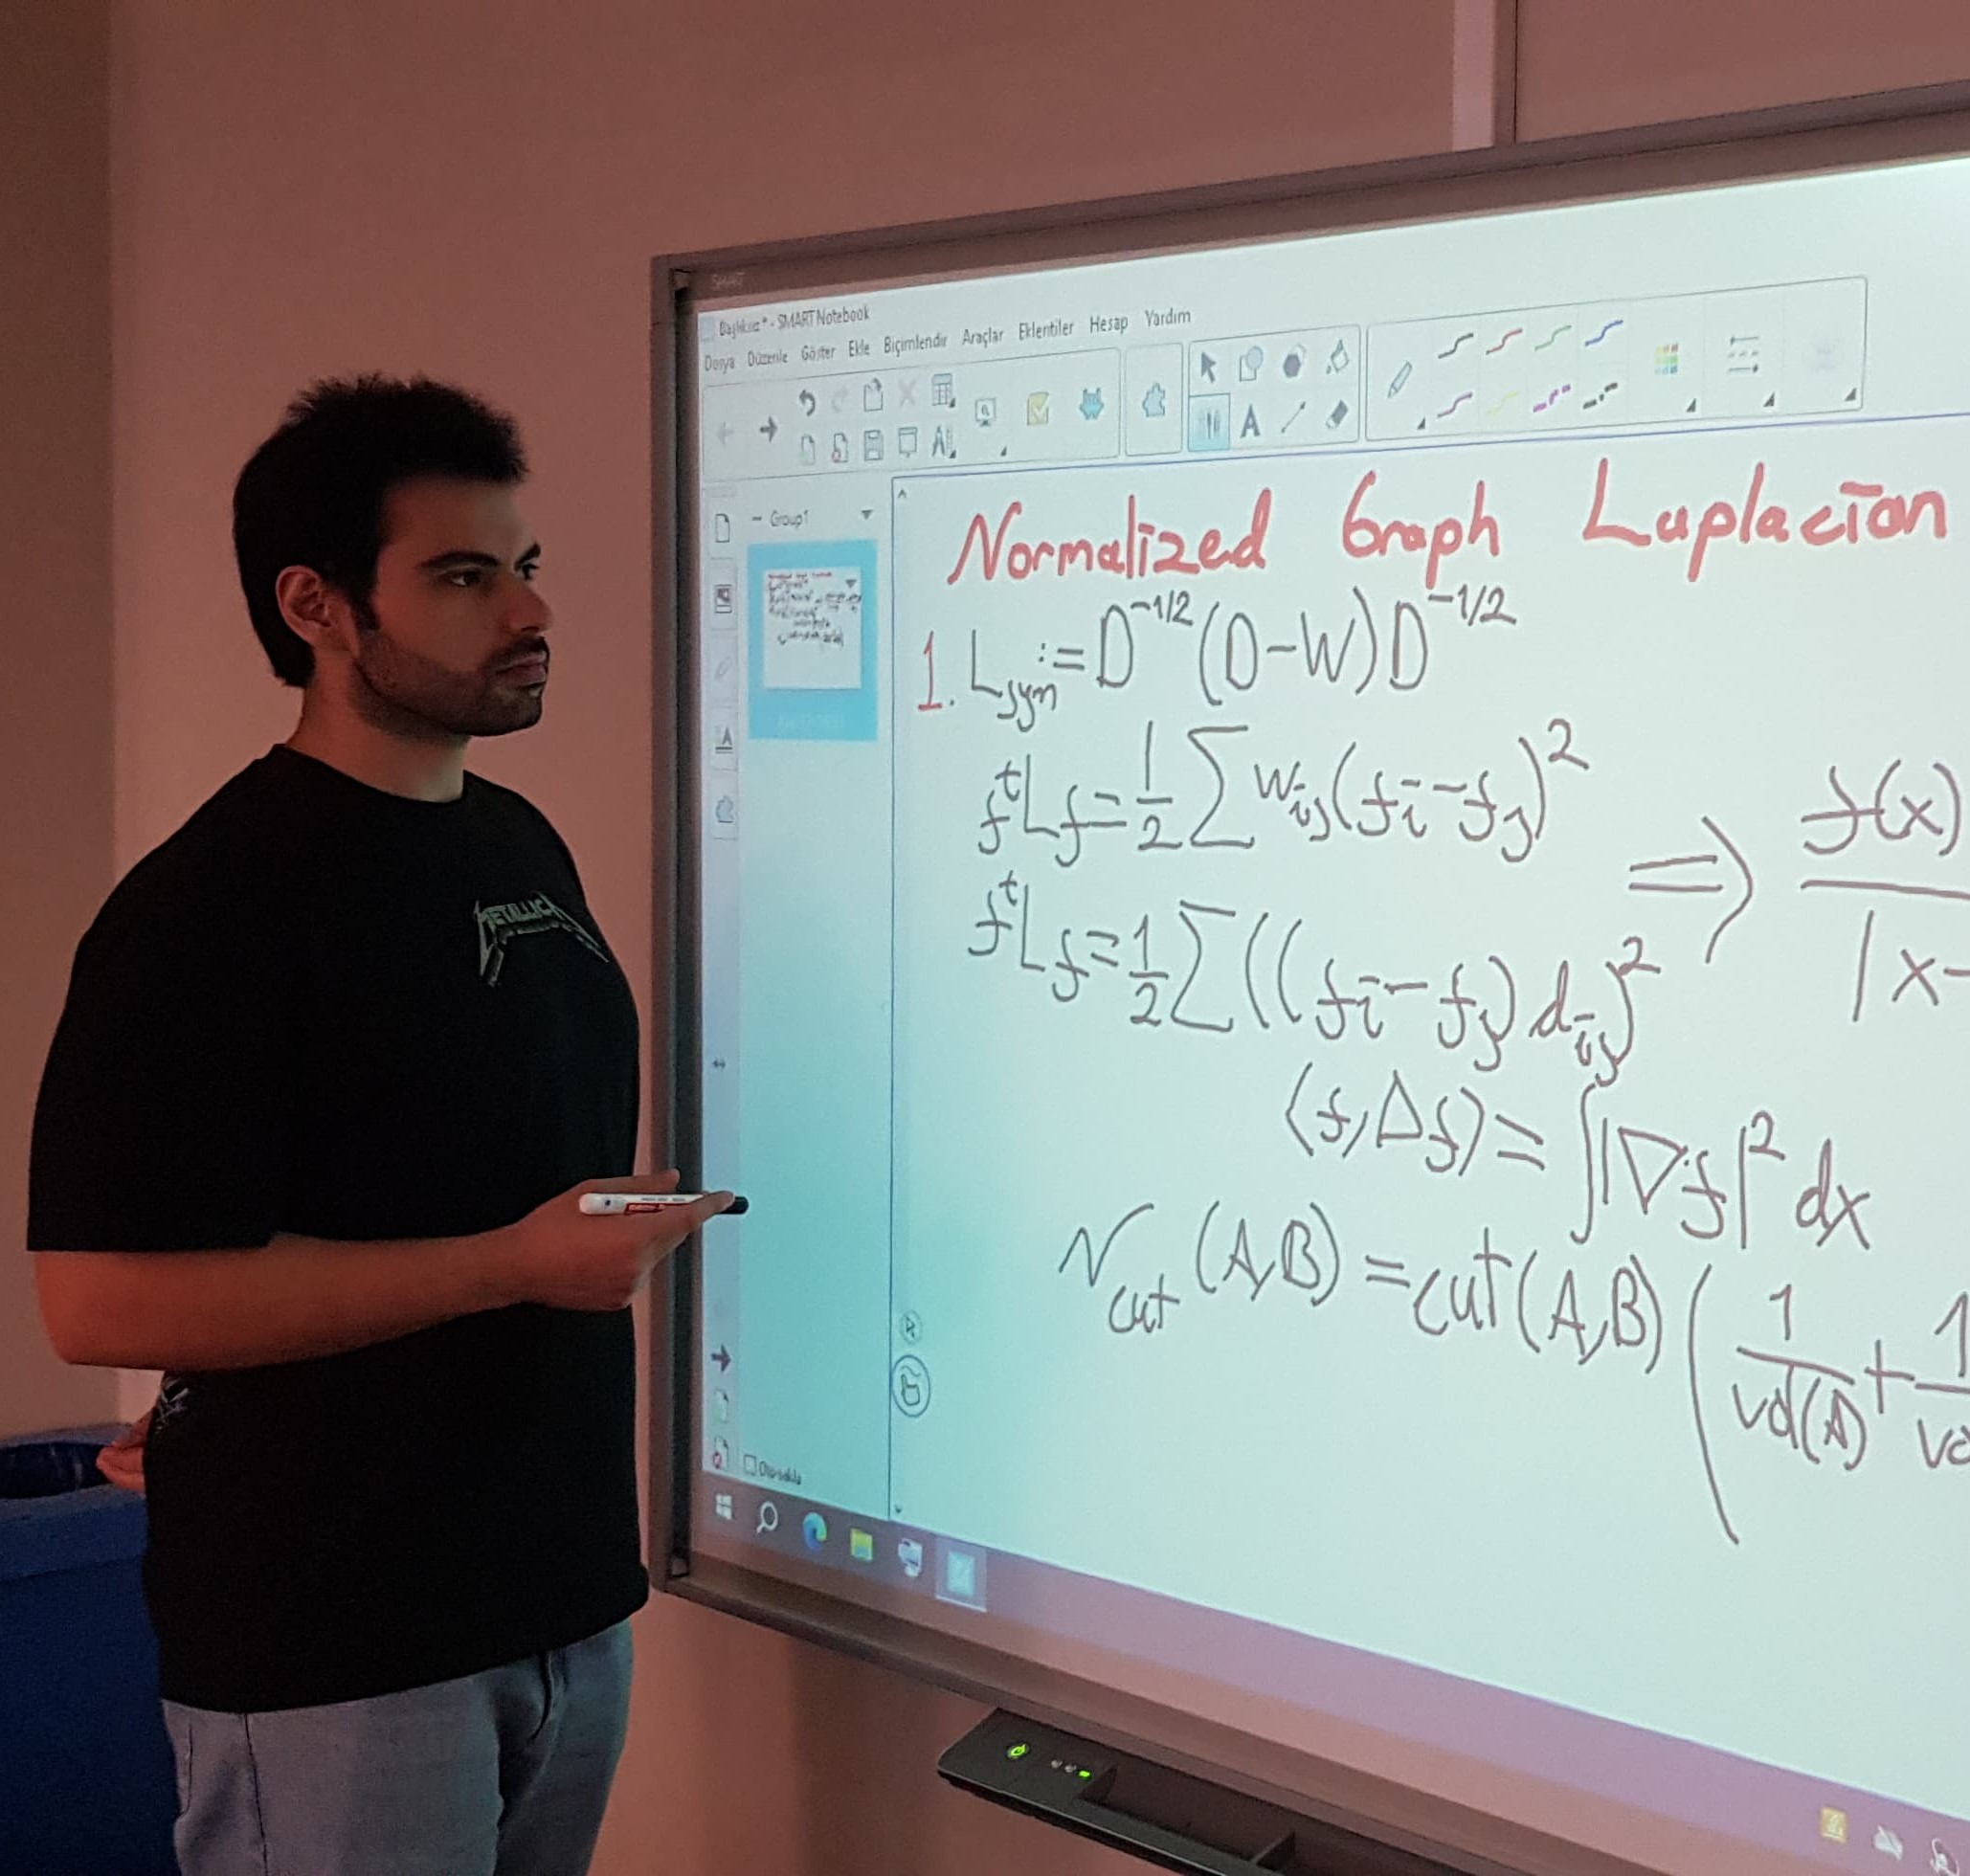 SMART
Başlıksız* - SMART Notebook
Dosya Düzenle Göster Ekle Biçimlendir Araçlar Eklentiler Hesap Yardım
Group1
Normalized Graph Laplacian
1. L_sym := D^-1/2 (D-W) D^-1/2
f^t L f = 1/2 ∑ w_ij (f_i - f_j)^2
⇒ f(x)
|x-
f^t L f = 1/2 ∑ ((f_i - f_j) d_ij)^2
⟨f, Δf⟩ = ∫ |∇f|^2 dx
N_cut (A,B) = cut(A,B) ( 1/vol(A) + 1/vo
METALLICA